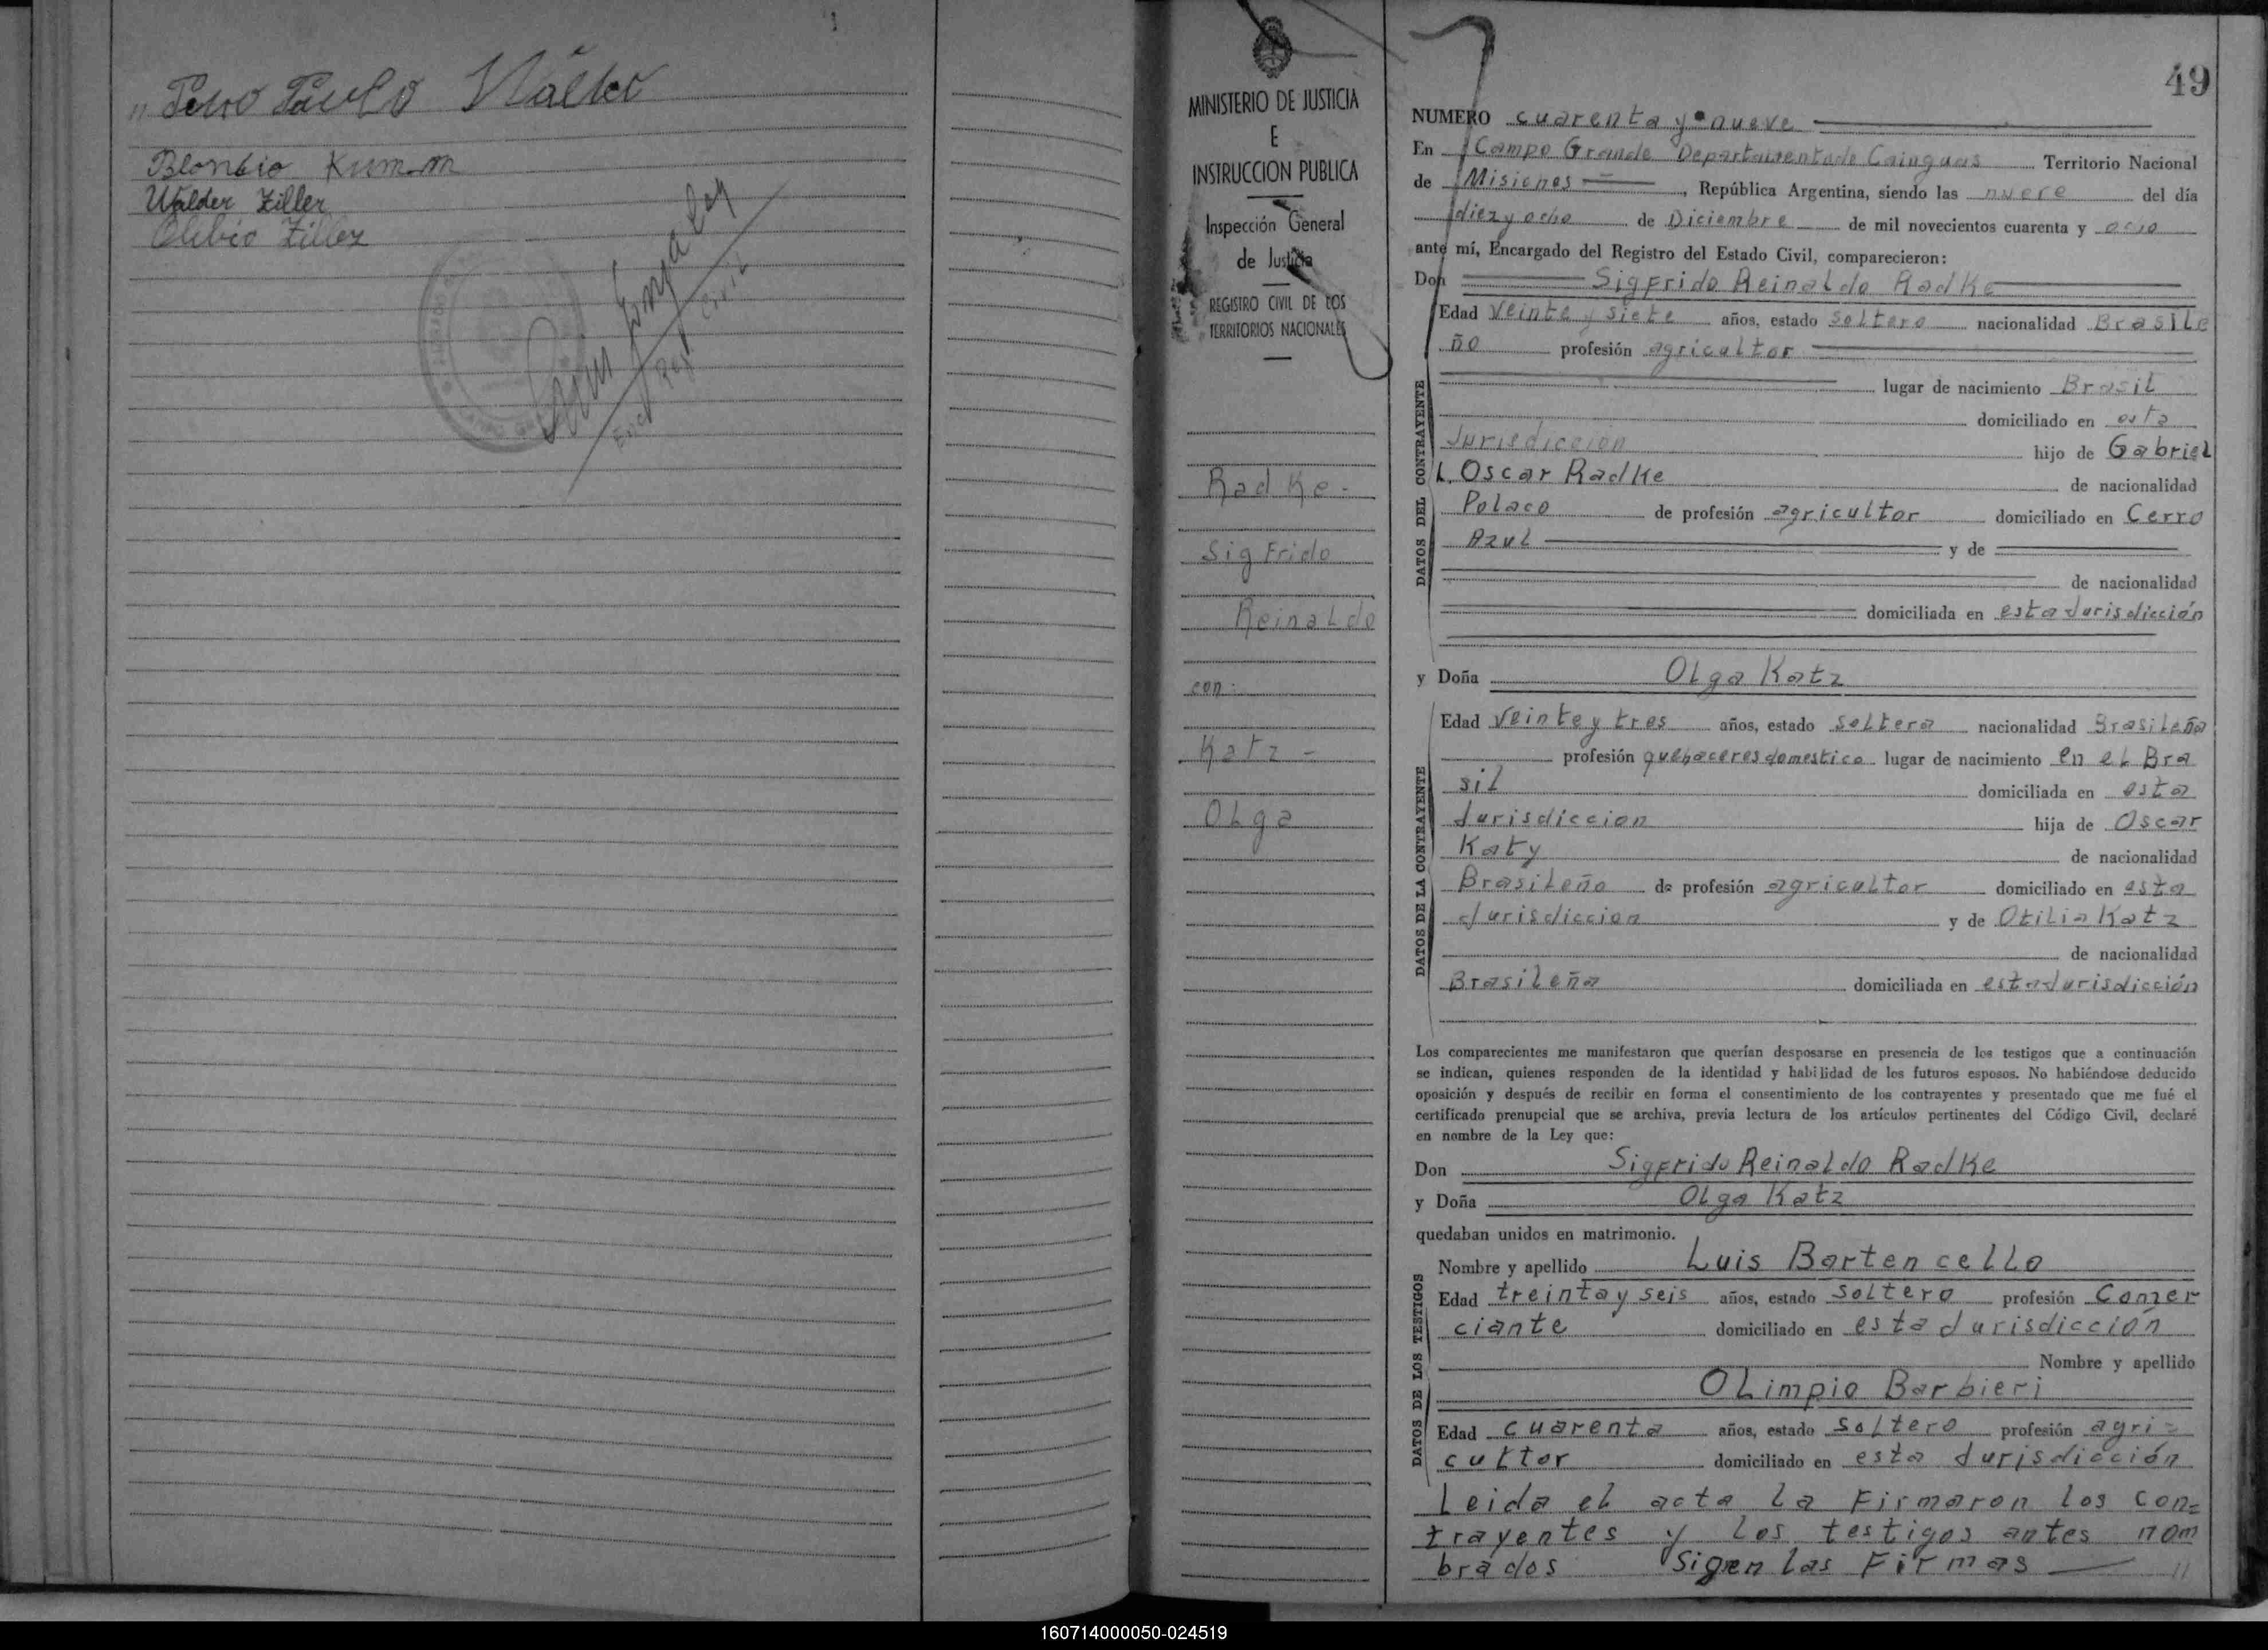 " Pedro Paulo Wálter
Blondio Kumm
Walder Ziller
Olibio Ziller
MINISTERIO DE JUSTICIA
E
INSTRUCCION PUBLICA
Inspección General
de Justicia
REGISTRO CIVIL DE LOS
TERRITORIOS NACIONALES
Radke.
Sigfrido
Reinaldo
con:
Katz -
Olga
49
NUMERO cuarenta y nueve
En Campo Grande Departamento de Cainguas Territorio Nacional
de Misiones, República Argentina, siendo las nueve del día
diez y ocho de Diciembre de mil novecientos cuarenta y ocho
ante mí, Encargado del Registro del Estado Civil, comparecieron:
Don Sigfrido Reinaldo Radke
Edad veinte y siete años, estado soltero nacionalidad Brasile
ño profesión agricultor
lugar de nacimiento Brasil
domiciliado en esta
Jurisdiccion hijo de Gabriel
L. Oscar Radke de nacionalidad
Polaco de profesión agricultor domiciliado en Cerro
Azul y de
de nacionalidad
domiciliada en esta Jurisdicción
DATOS DEL CONTRAYENTE
y Doña Olga Katz
Edad veinte y tres años, estado soltera nacionalidad Brasileña
profesión quehaceres domestico lugar de nacimiento en el Bra
sil domiciliada en esta
Jurisdiccion hija de Oscar
Katy de nacionalidad
Brasileño de profesión agricultor domiciliado en esta
Jurisdiccion y de Otilia Katz
de nacionalidad
Brasileña domiciliada en esta Jurisdicción
DATOS DE LA CONTRAYENTE
Los comparecientes me manifestaron que querían desposarse en presencia de los testigos que a continuación
se indican, quienes responden de la identidad y habilidad de los futuros esposos. No habiéndose deducido
oposición y después de recibir en forma el consentimiento de los contrayentes y presentado que me fué el
certificado prenupcial que se archiva, previa lectura de los artículos pertinentes del Código Civil, declaré
en nombre de la Ley que:
Don Sigfrido Reinaldo Radke
y Doña Olga Katz
quedaban unidos en matrimonio.
Nombre y apellido Luis Bartencello
Edad treinta y seis años, estado soltero profesión Comer
ciante domiciliado en esta Jurisdicción
Nombre y apellido
Olimpio Barbieri
Edad cuarenta años, estado soltero profesión agri=
cultor domiciliado en esta Jurisdicción
DATOS DE LOS TESTIGOS
Leida el acta la firmaron los con=
trayentes y los testigos antes nom
brados Sigen las Firmas — "
160714000050-024519